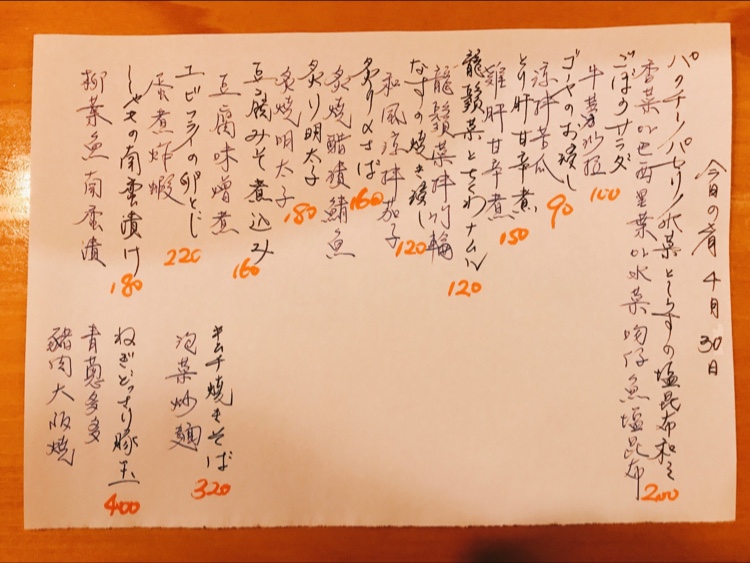 今日の肴 4月30日
パクチー/パセリ/水菜としらすの塩昆布和え
香菜or巴西里葉or水菜吻仔魚塩昆布
200
ごぼうサラダ
牛蒡沙拉
100
ゴーヤのお浸し
涼拌苦瓜
90
とり肝甘辛煮
雞肝甘辛煮
150
龍鬚菜とちくわナムル
龍鬚菜拌竹輪
120
なすの焼き浸し
和風涼拌茄子
120
炙り〆さば
炙燒醋漬鯖魚
160
炙り明太子
炙燒明太子
180
豆腐みそ煮込み
豆腐味噌煮
160
エビフライの卵とじ
蛋煮炸蝦
220
ししゃもの南蛮漬け
柳葉魚南蛮漬
180
キムチ焼きそば
泡菜炒麵
320
ねぎどっさり豚玉
青蔥多多
豬肉大阪燒
400